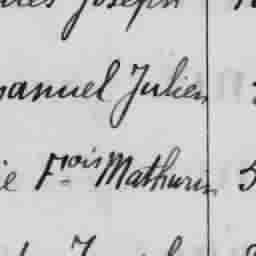 Joseph
anuel Julien
ie Frois Mathurin 5